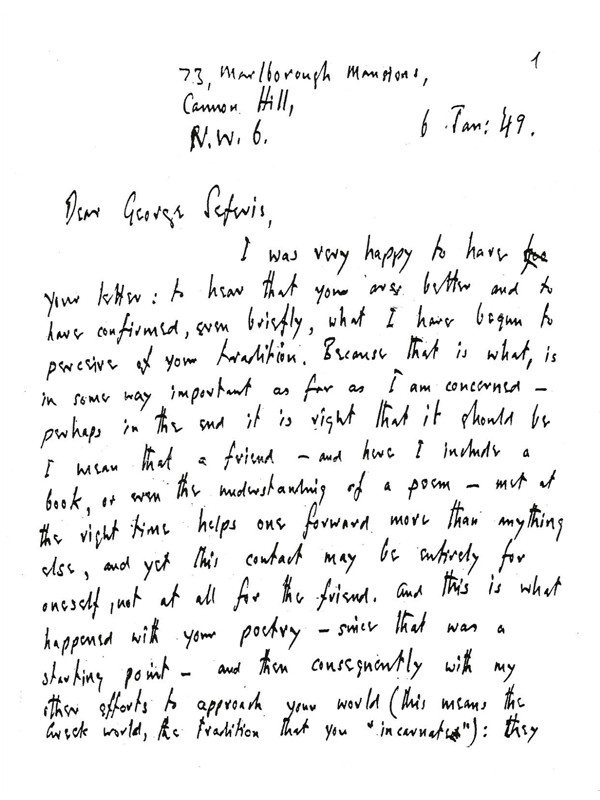 1
73, Marlborough Mansions,
Cannon Hill,
N.W. 6.
6 Jan: 49.
Dear George Seferis,
I was very happy to have
your letter: to hear that you are better and to
have confirmed, even briefly, what I have begun to
perceive of your tradition. Because that is what, is
in some way important as far as I am concerned –
perhaps in the end it is right that it should be
I mean that a friend – and here I include a
book, or even the understanding of a poem – met at
the right time helps one forward more than anything
else, and yet this contact may be entirely for
oneself, not at all for the friend. And this is what
happened with your poetry – since that was a
starting point – and then consequently with my
other efforts to approach your world (this means the
Greek world, the tradition that you "incarnate"): they